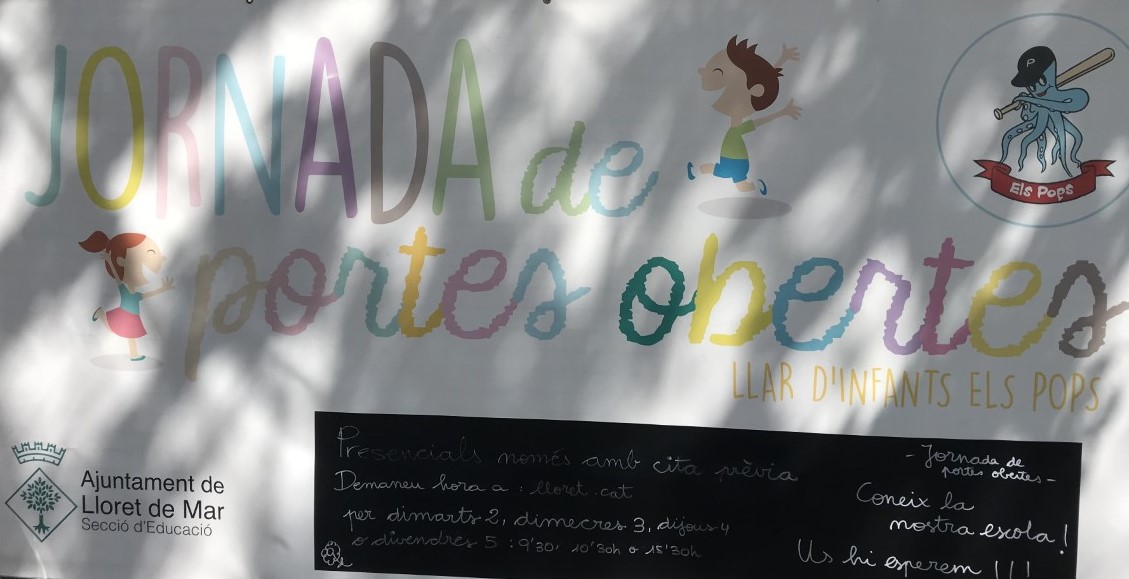 JORNADA de
portes obertes
LLAR D'INFANTS ELS POPS
P
Els Pops
Ajuntament de
Lloret de Mar
Secció d'Educació
Presencials només amb cita prèvia
Demaneu hora a: lloret.cat
per dimarts 2, dimecres 3, dijous 4
o divendres 5: 9'30, 10'30h o 15'30h
- Jornada de
portes obertes -
Coneix la
nostra escola!
Us hi esperem !!!